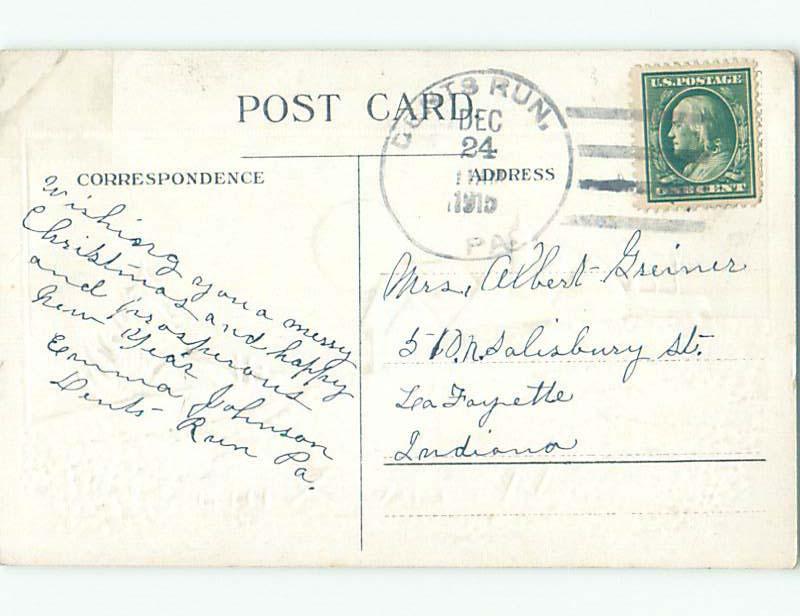 POST CARD.
CORRESPONDENCE
ADDRESS
DENTS RUN,
DEC
24
1915
PA.
U.S. POSTAGE
ONE CENT
Wishiong you a merry
Christmas and happy
and prosperous
New Year
Emma Johnson
Dents Run Pa.
Mrs. Albert Greiner
510. N. Salisbury St.
La Fayette
Indiana